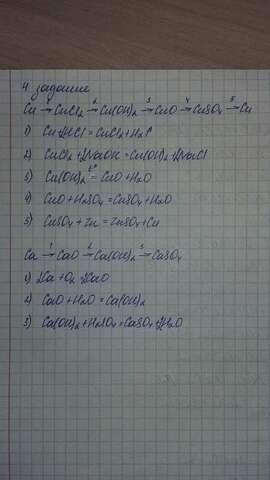 4 задание
Cu →¹ CuCl₂ →² Cu(OH)₂ →³ CuO →⁴ CuSO₄ →⁵ Cu
1) Cu+2HCl = CuCl₂+H₂↑
2) CuCl₂+2NaOH = Cu(OH)₂+2NaCl
3) Cu(OH)₂ =t° CuO+H₂O
4) CuO+H₂SO₄ = CuSO₄+H₂O
5) CuSO₄+Zn = ZnSO₄+Cu
Ca →¹ CaO →² Ca(OH)₂ →³ CaSO₄
1) 2Ca+O₂ = 2CaO
2) CaO+H₂O = Ca(OH)₂
3) Ca(OH)₂+H₂SO₄ = CaSO₄+2H₂O